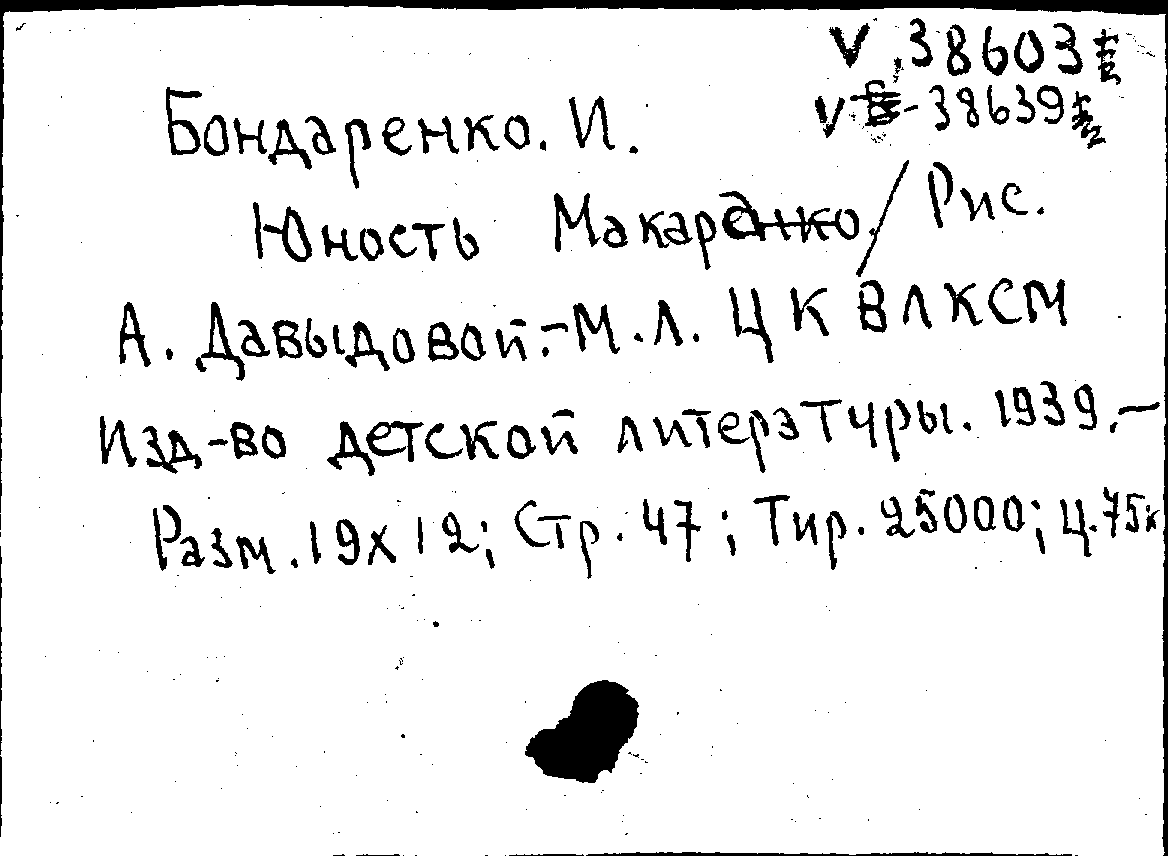 V 38603
V - 38639
Бондаренко. И.
Юность Макара / Рис.
А. Давыдовой.-М.Л. ЦК ВЛКСМ
Изд-во детской литературы. 1939.-
Разм. 19х12; Стр. 47; Тир. 25000; ц.75к